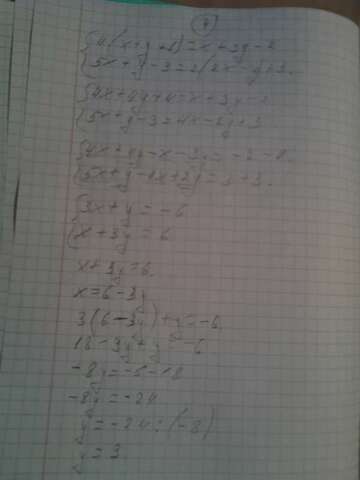 4
4(x+y+1)=x+3y-2
5x+y-3=2(2x-y)+3.
4x+4y+4=x+3y-2
5x+y-3=4x-2y+3
4x+4y-x-3y=-2-4.
5x+y-4x+2y=3+3.
3x+y=-6
x+3y=6
x+3y=6.
x=6-3y
3(6-3y)+y=-6.
18-3y+y=-6
-8y=-6-18
-8y=-24
y=-24:(-8)
y=3.